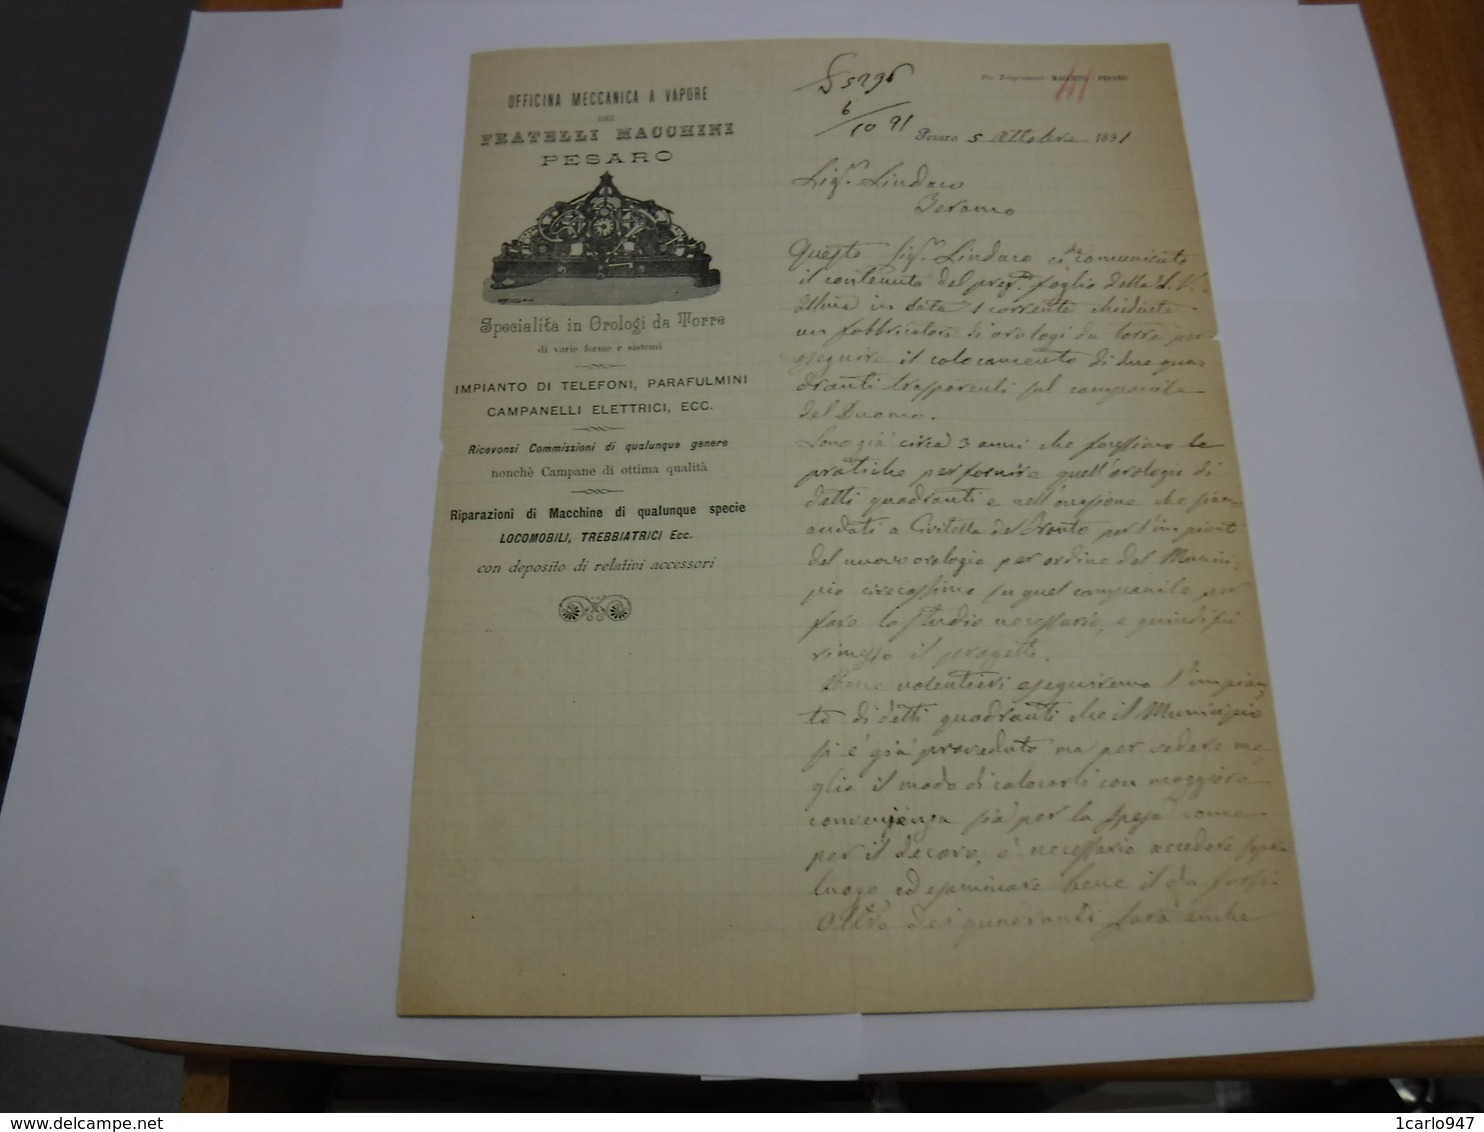 OFFICINA MECCANICA A VAPORE
DEI
FRATELLI MACCHINI
PESARO
Specialità in Orologi da Torre
di varie forme e sistemi
IMPIANTO DI TELEFONI, PARAFULMINI
CAMPANELLI ELETTRICI, ECC.
Ricevonsi Commissioni di qualunque genere
nonchè Campane di ottima qualità
Riparazioni di Macchine di qualunque specie
LOCOMOBILI, TREBBIATRICI Ecc.
con deposito di relativi accessori
Per Telegrammi: MACCHINI - PESARO
5296
6/10 91
Pesaro 5 Ottobre 1891
Sigr. Sindaco
Teramo
Questo Sigr. Sindaco ci ha comunicato
il contenuto del preg. foglio della S. V.
Illma in data 1 corrente chiedente
un fabbricatore di orologi da torre per
eseguire il colocamento di due qua-
dranti trasparenti sul campanile
del Duomo.
Sono già circa 3 anni che facessimo le
pratiche per fornire quell'orologio di
detti quadranti e nell'occasione che siam-
andati a Civitella del Tronto per l'impianto
del nuovo orologio per ordine del Munici-
pio su quel campanile per
fare lo studio necessario, e quindi fù
rimesso il progetto.
Bene volentieri eseguiremo l'impian-
to di detti quadranti che il Municipio
si è già proveduto ma per vedere me-
glio il modo di colocarli con maggiore
convenienza sia per la spesa come
per il decoro, è necessario accedere sopra
luogo ed esaminare bene il da farsi.
Oltre dei quadranti sarà anche
delcampe.net
1carlo947